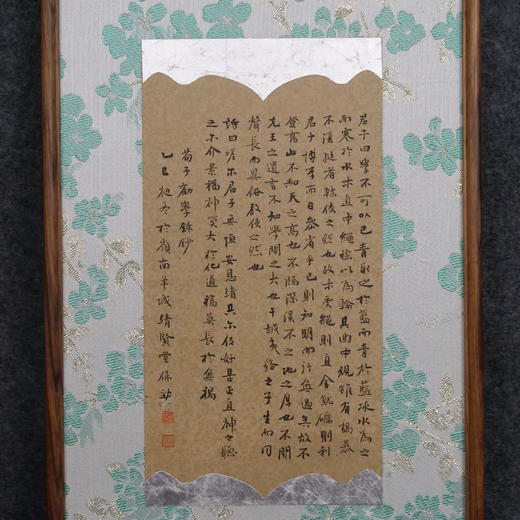 君子曰學不可以已青取之於藍而青於藍冰水為之
而寒於水木直中繩輮以為輪其曲中規雖有槁暴
不復挺者輮使之然也故木受繩則直金就礪則利
君子博學而日參省乎己則知明而行無過矣故不
登高山不知天之高也不臨深溪不之地之厚也不聞
先王之遺言不知學問之大也干越夷貉之子生而同
聲長而異俗教使之然也
詩曰嗟尒君子無恒安息靖共尒位好是正直神之聽
之尒介景福神莫大於化道福莫長於無禍
荀子勸學錄鈔
乙巳初冬於嶺南羊城靖賢堂保